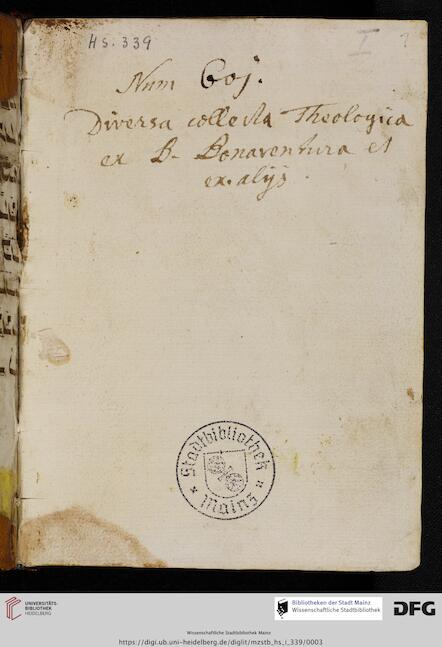 Hs. 339
I
Num 60j.
Diversa collecta Theologica
ex B. Bonaventura et
ex alijs.
Stadtbibliothek
* Mainz *
UNIVERSITÄTS-
BIBLIOTHEK
HEIDELBERG
Wissenschaftliche Stadtbibliothek Mainz
https://digi.ub.uni-heidelberg.de/diglit/mzstb_hs_i_339/0003
Bibliotheken der Stadt Mainz
Wissenschaftliche Stadtbibliothek
DFG